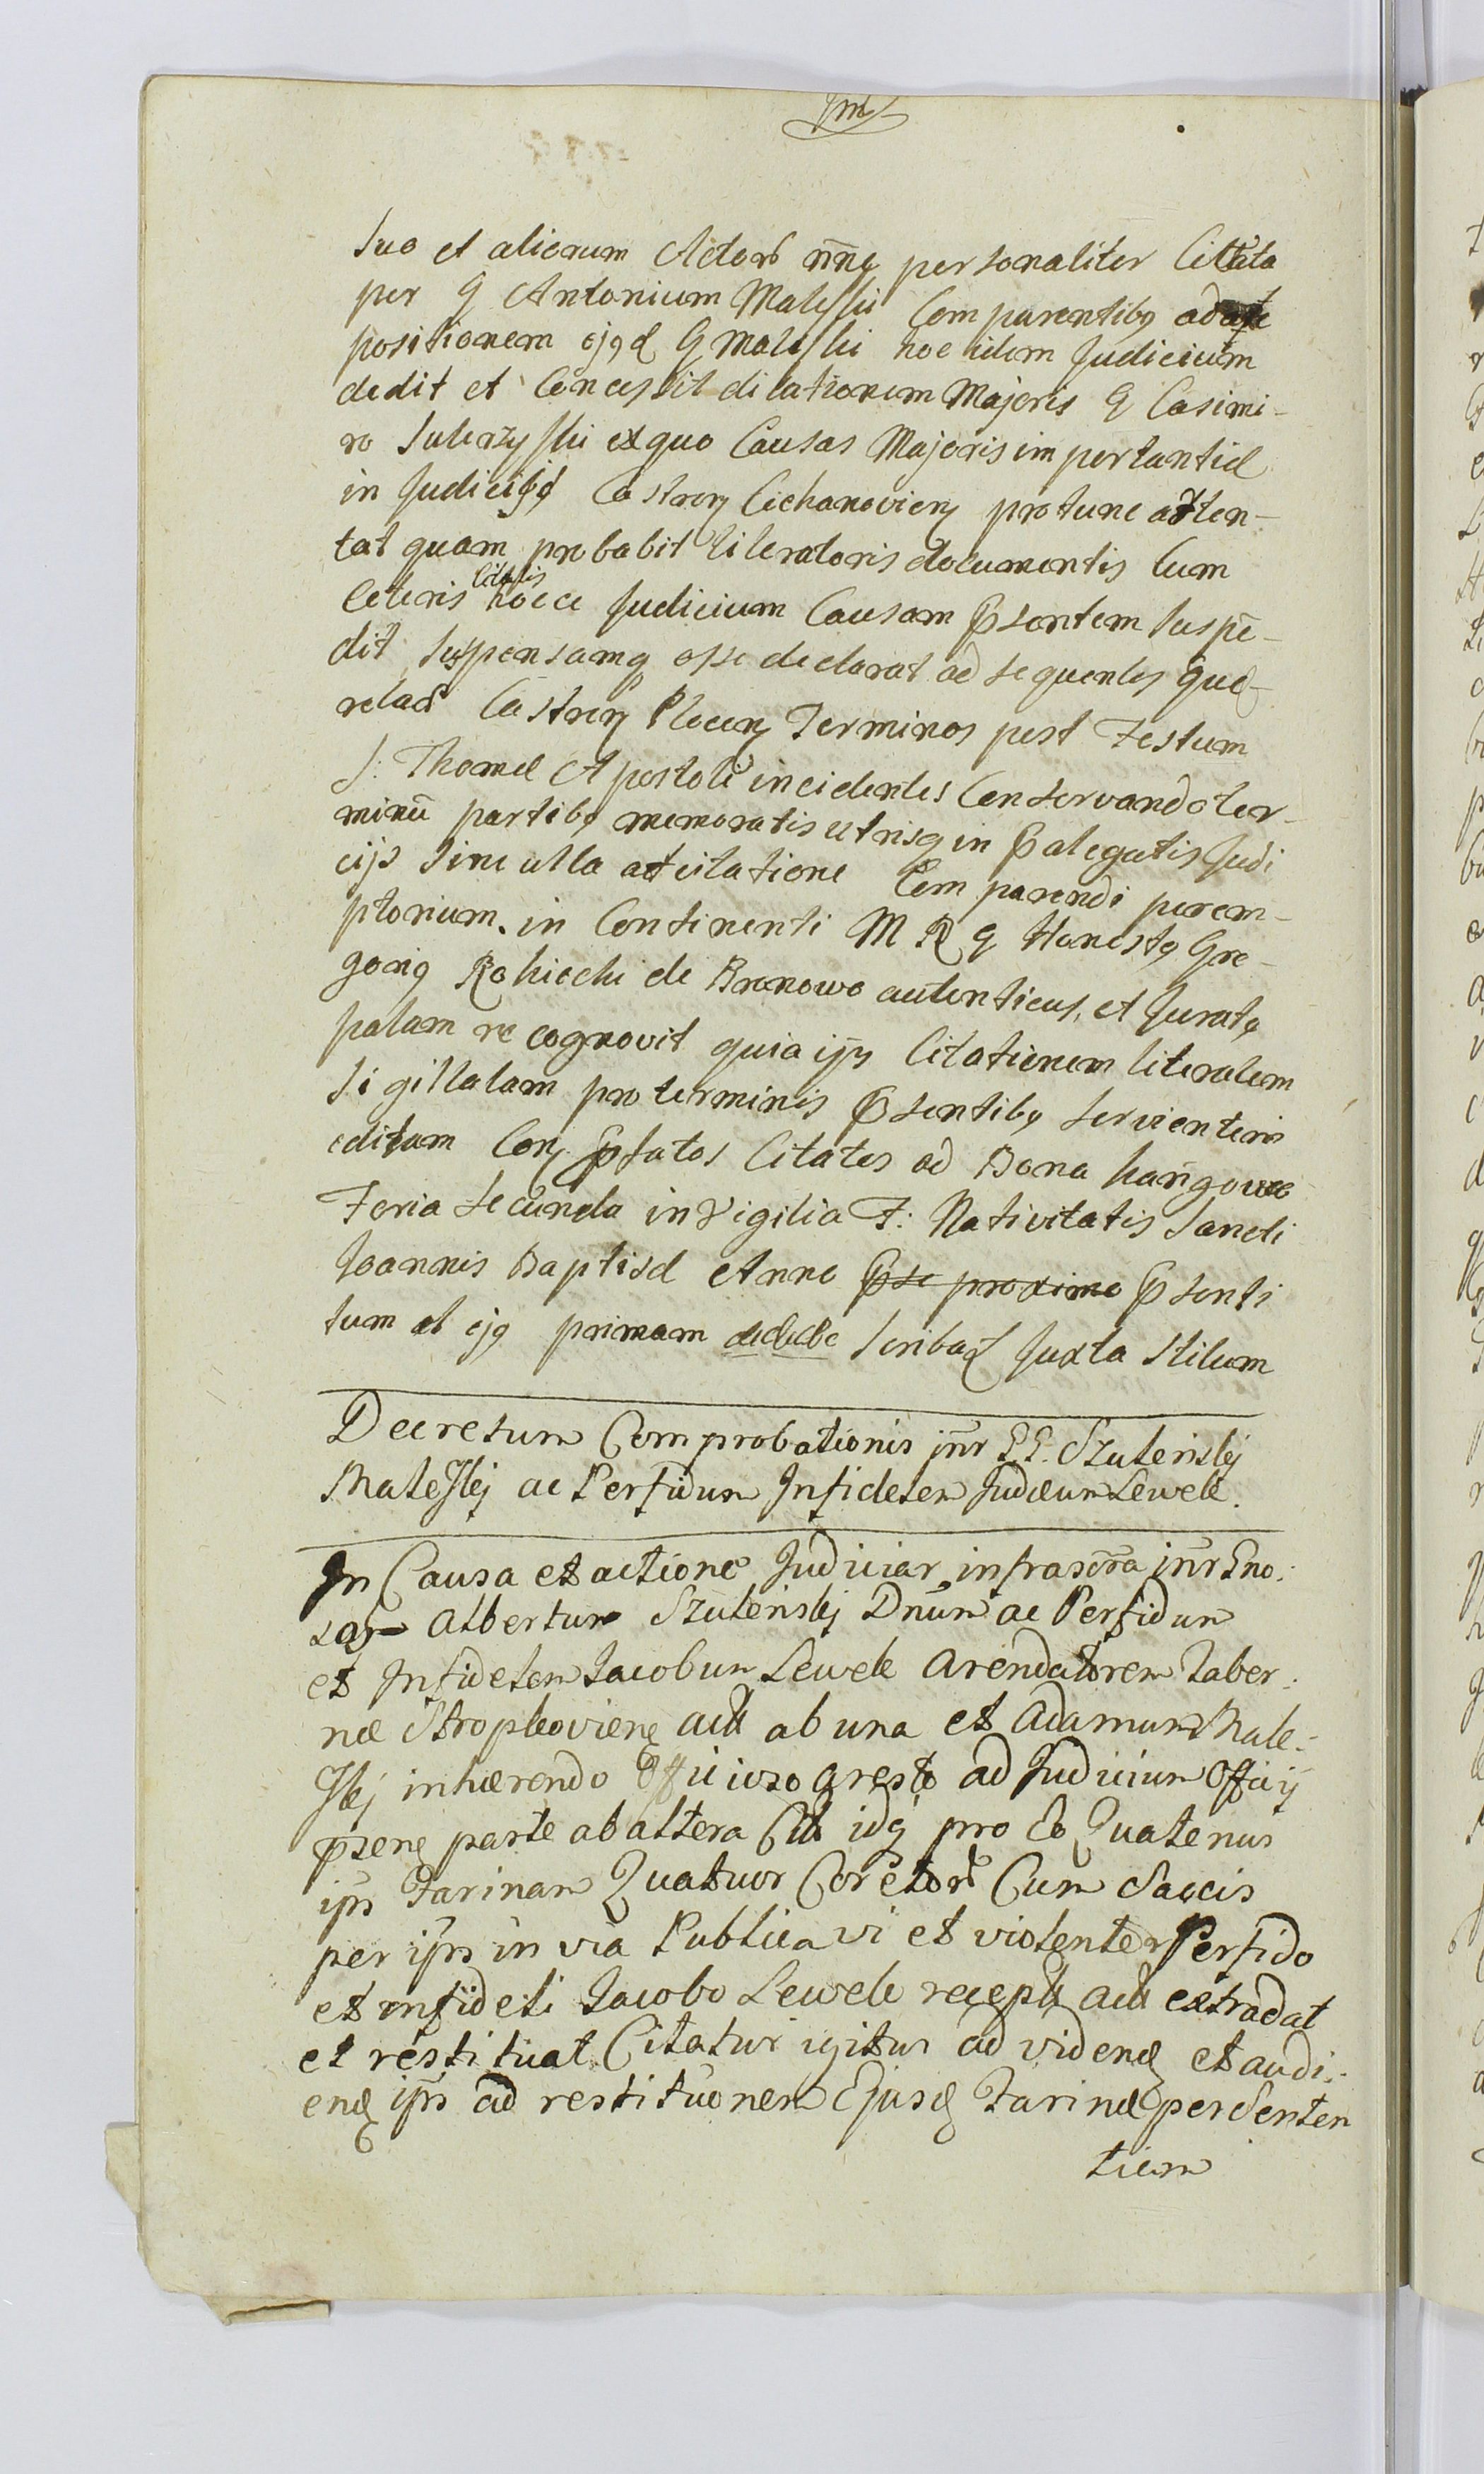 Suo et aliorum Actorū nn̄e personaliter Citata
per G Antonium Maleski Comparentibȝ ad
positionem ejȝd G Maleski hoc idem Judicium
dedit et Concessit dilationem Majoris G Casimi-
ro Sulerzyski ex quo Causas Majoris importantiæ
in Judicijs Castren Ciechanovien protunc atten-
tat quam probabit literatoris documentis Cum
Ceteris Citatis hocce Judicium Causam Psentem suspē-
dit suspensamq esse declarat ad sequentes Que-
relarū Castren Plocen Terminos post Festum
S: Thomæ Apostoli incidentes Conservando ter-
minū partibȝ memoratis utrisq in Palegatis Judi
cijs sine ulla adcitatione Comparendi perem-
ptorium. in Continenti M R G Honestȝ Gre-
gorig Rokicki de Bronowo autenticus, et Juratȝ
palam recognovit quia ijs Citationem literalem
sigillatam pro terminis Psentibȝ servientem
editam Con Pfatos Citatos ad Bona
Feria secunda in Vigilia F: Nativitatis Sancti
Joannis Baptistæ Anno Pse proxime Psenti
tum et ejȝ primam dedebe scribaꝶ Juxta Stilum
Decretum Comprobationis jnr GG. Szulenskj
Maleskj ac Perfidum Infidelem Judæum Lewek.
In Causa et actione Judiciar infrascra jnr Gno:
sos Albertum Szulenskj Dnum ac Perfidum
et Infidelem Jacobum Lewek Arendatorem Taber:
næ Stropkovien act ab una et Adamum Male:
skj inhærendo Officioso aresto ad Judicium Officij
psens parte ab altera Cit idq pro Eo Quatenus
ips Farinam Quatuor Coretorū Cum Saccis
per ips in via Publica vi et violenter Perfido
et infideli Jacobo Lewek recept act extradat
et restituat Citatur igitur ad videnꝺ et audi:
enꝺ ips ad restitūonem Ejusꝺ Farinæ per Senten
tiam